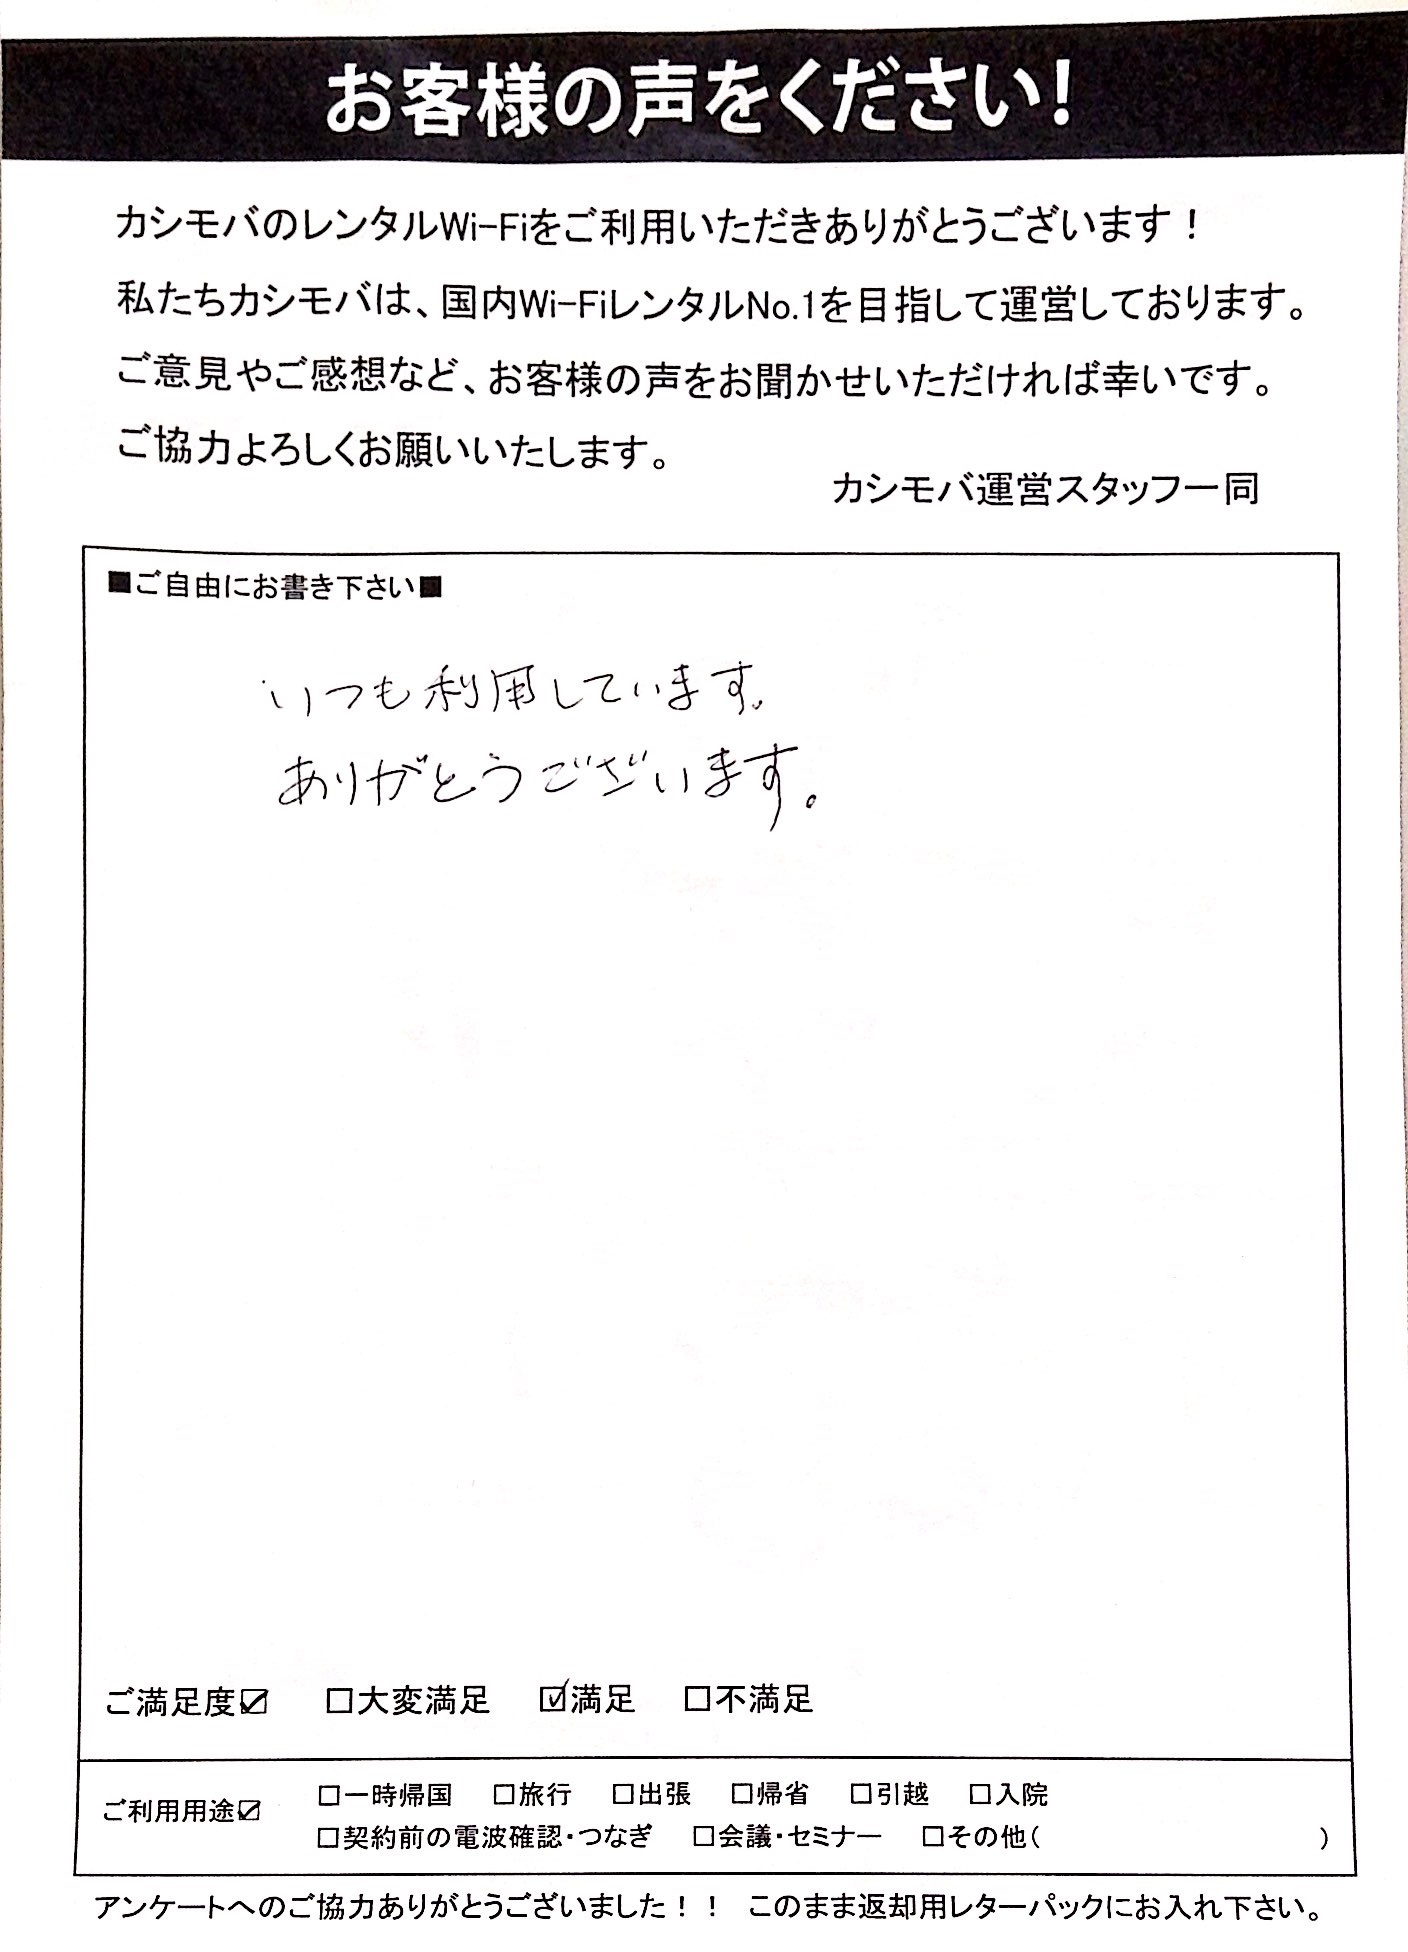 お客様の声をください!
カシモバのレンタルWi-Fiをご利用いただきありがとうございます！
私たちカシモバは、国内Wi-FiレンタルNo.1を目指して運営しております。
ご意見やご感想など、お客様の声をお聞かせいただければ幸いです。
ご協力よろしくお願いいたします。
カシモバ運営スタッフ一同
■ご自由にお書き下さい■
いつも利用しています。
ありがとうございます。
ご満足度☑ □大変満足 ☑満足 □不満足
ご利用用途☑ □一時帰国 □旅行 □出張 □帰省 □引越 □入院
□契約前の電波確認・つなぎ □会議・セミナー □その他( )
アンケートへのご協力ありがとうございました！！ このまま返却用レターパックにお入れ下さい。